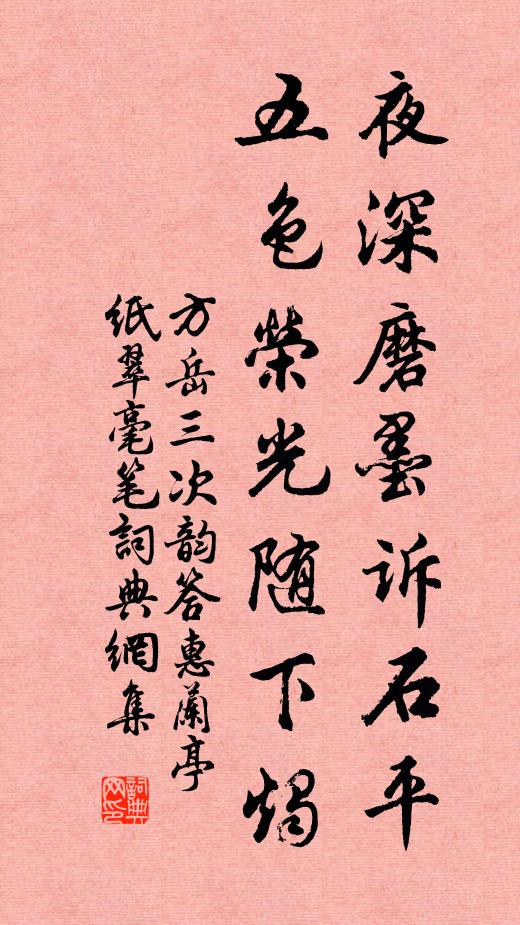 夜深磨墨诉石平
五色榮光随下燭
方岳三次韵答惠蘭亭
紙翠毫笔詞典網集
詞典
网印